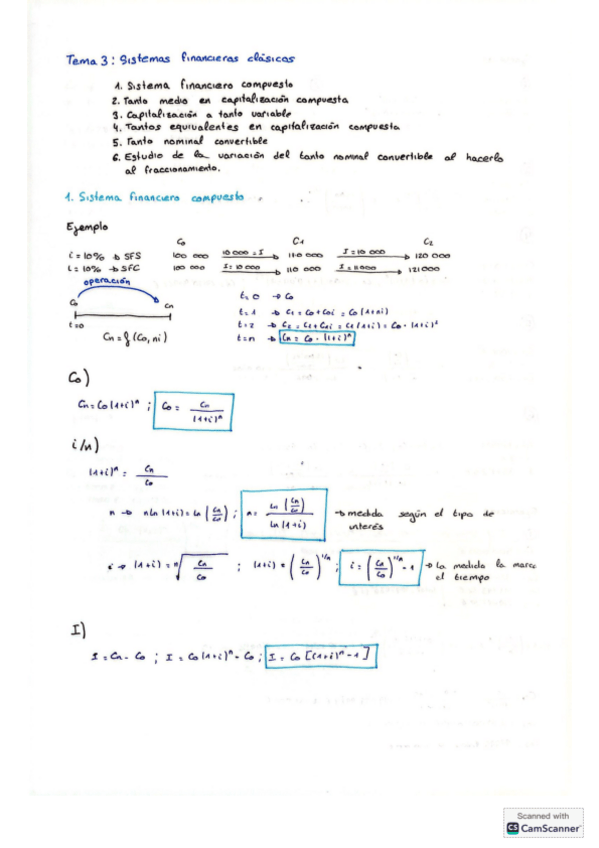 Tema 3: Sistemas financieras clásicos
1. Sistema financiero compuesto
2. Tanto medio en capitalización compuesta
3. Capitalización a tanto variable
4. Tantos equivalentes en capitalización compuesta
5. Tanto nominal convertible
6. Estudio de la variación del tanto nominal convertible al hacerlo
al fraccionamiento.
1. Sistema financiero compuesto
Ejemplo
C0 C1 C2
i = 10% → SFS 100 000 10 000 = I 110 000 I = 10 000 120 000
i = 10% → SFC 100 000 I = 10 000 110 000 I = 11000 121000
operación
C0 Cn
t=0
Cn = f (C0, ni)
t=0 → C0
t=1 → C1 = C0 + C0i = C0 (1+ni)
t=2 → C2 = C1 + C1i = C1 (1+i) = C0 · (1+i)²
t=n → Cn = C0 · (1+i)ⁿ
C0)
Cn = C0 (1+i)ⁿ ; C0 = Cn / (1+i)ⁿ
i/n)
(1+i)ⁿ = Cn / C0
n → n ln (1+i) = ln (Cn/C0) ; n = ln (Cn/C0) / ln (1+i) → medida según el tipo de
interés
i → (1+i) = ⁿ√(Cn/C0) ; (1+i) = (Cn/C0)^1/n ; i = (Cn/C0)^1/n - 1 → la medida la marca
el tiempo
I)
I = Cn - C0 ; I = C0 (1+i)ⁿ - C0 ; I = C0 [(1+i)ⁿ - 1]
Scanned with
CS CamScanner